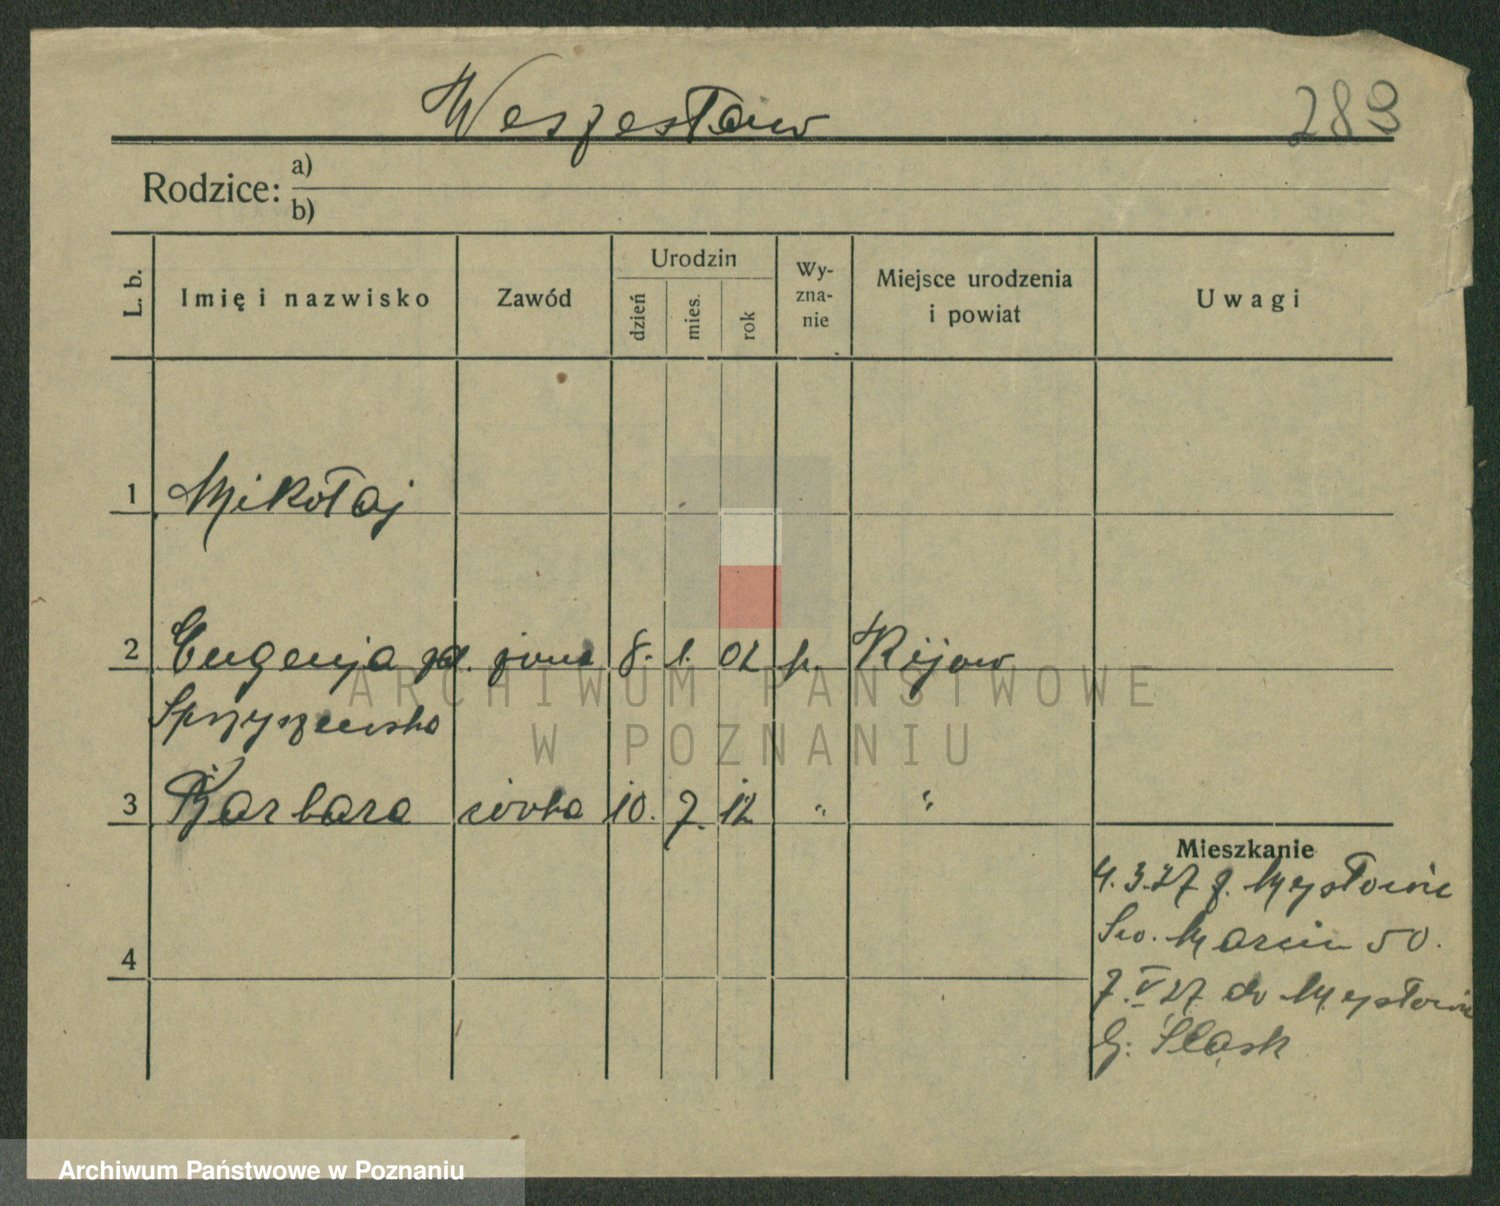 Weszesław 283
Rodzice: a)
b)
L. b. Imię i nazwisko Zawód Urodzin dzień mies. rok Wy-zna-nie Miejsce urodzenia i powiat Uwagi
1 Mikołaj
2 Eugenja żona 8. 1. 02 Kijow
3 Barbara córka 10. 7. 12 " "
4
Mieszkanie
4.3.27 z Mysłowic
Św. Marcin 50.
7.V.27 do Mysłowic
G. Śląsk
ARCHIWUM PAŃSTWOWE
W POZNANIU
Archiwum Państwowe w Poznaniu